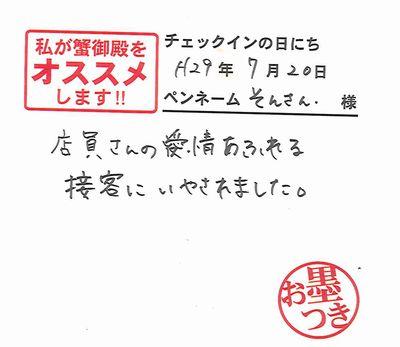 私が蟹御殿を
オススメ
します!!
チェックインの日にち
H29年 7月20日
ペンネーム そんさん. 様
店員さんの愛情あふれる
接客にいやされました。
お墨つき